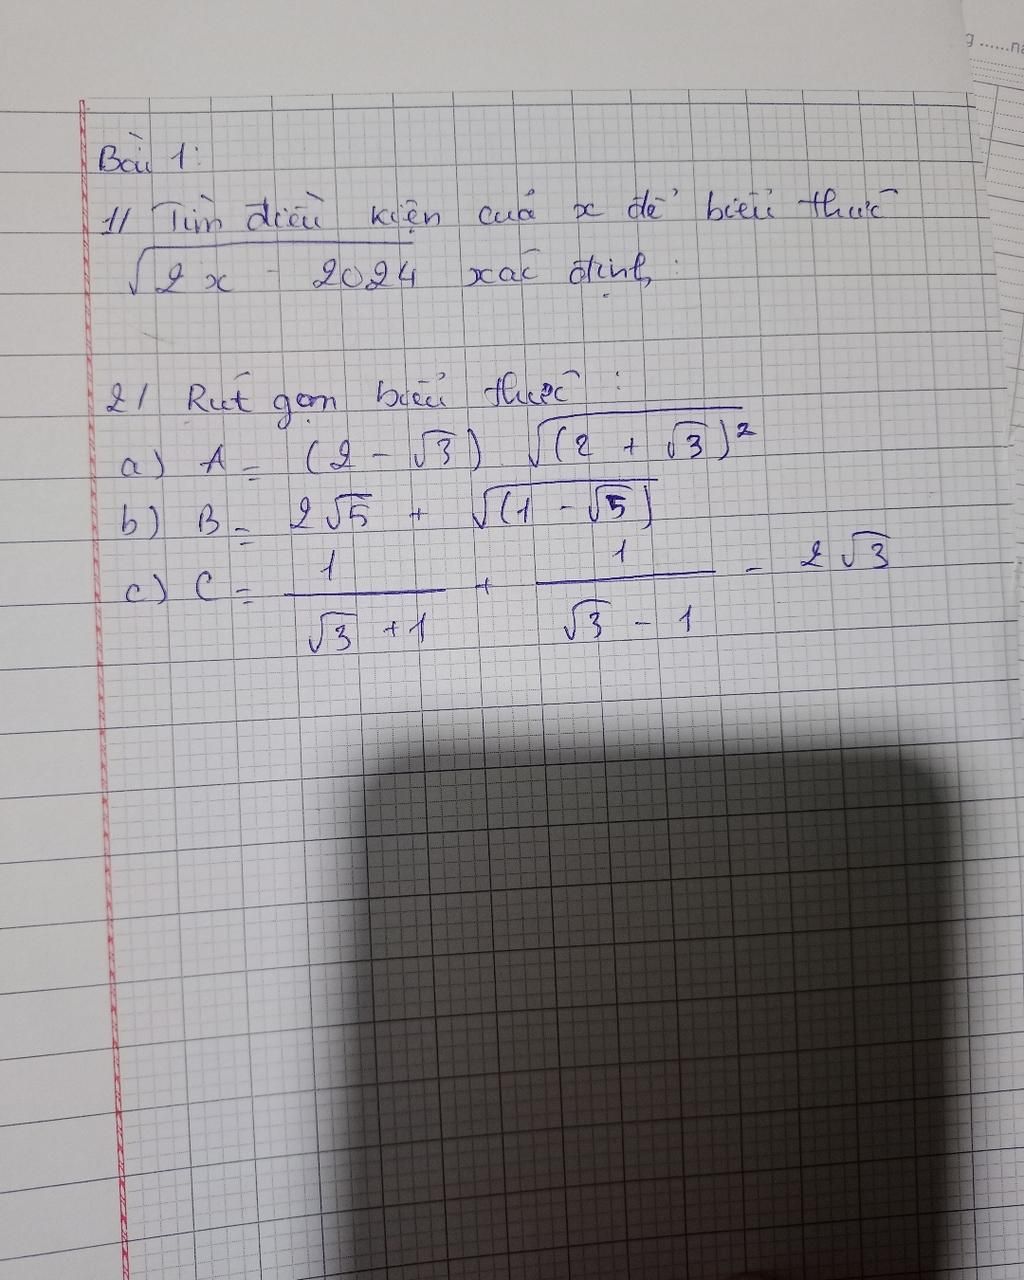 Bài 1:
1/ Tìm điều kiện của x để biểu thức
√(2x - 2024) xác định:
2/ Rút gọn biểu thức:
a) A = (2 - √3) √(2 + √3)²
b) B = 2√5 + √(1 - √5)
c) C = 1/(√3 + 1) + 1/(√3 - 1) - 2√3